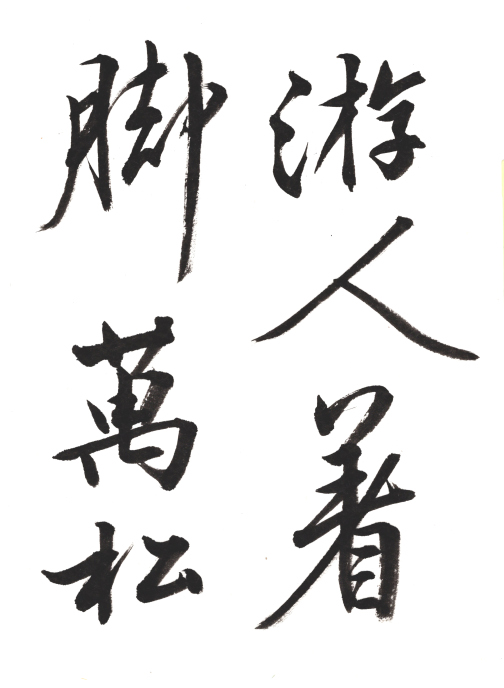 游人着
脚萬松